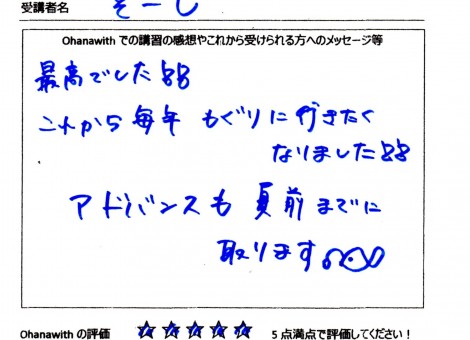 受講者名 そーし
Ohanawith での講習の感想やこれから受けられる方へのメッセージ等
最高でした
これから毎年 もぐりに行きたく
なりました
アドバンスも夏前までに
取ります
Ohanawith の評価 ☆☆☆☆☆ 5点満点で評価してください!